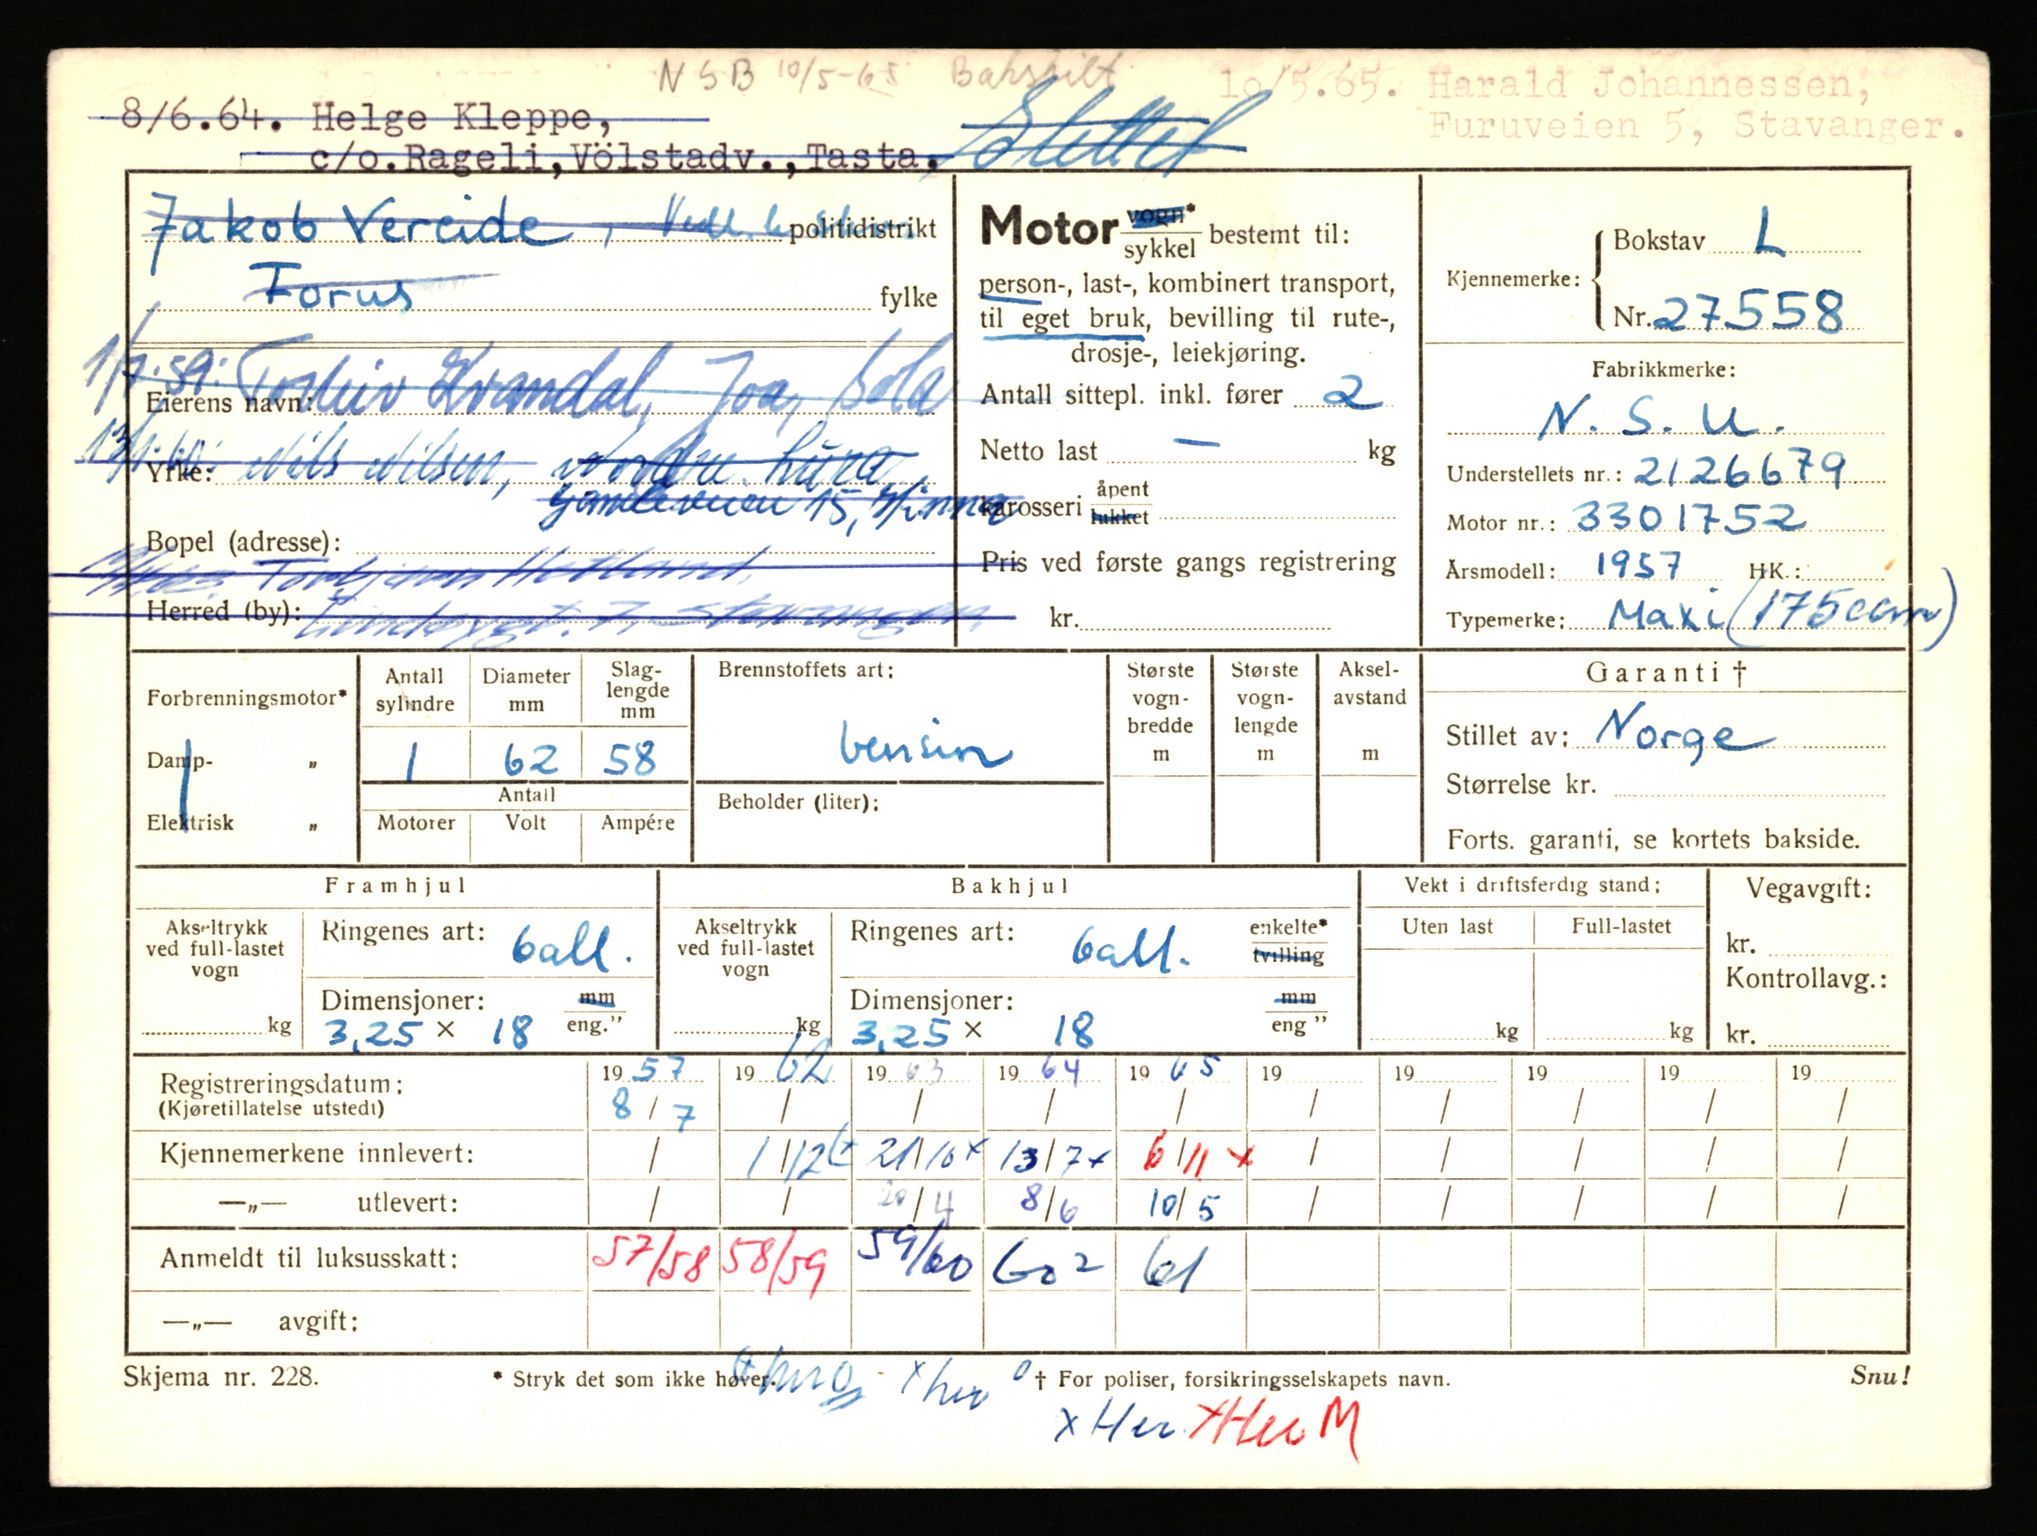 NSB 10/5-65 Bakskilt
10/5.65. Harald Johannessen,
Furuveien 5, Stavanger.
8/6.64. Helge Kleppe,
c/o.Rageli,Völstadv.,Tasta.
Slettet
Jakob Vereide, politidistrikt
Forus fylke
1/7.59: Torleiv Kvandal, Joa, Sola
Eierens navn:
Yrke: Nils Nilsen, Nordre Lura
Gamleveien 15,
Bopel (adresse):
Torbjørn Hetland,
Herred (by): 7, Stavanger,
Motor vogn*
sykkel bestemt til:
person-, last-, kombinert transport,
til eget bruk, bevilling til rute-,
drosje-, leiekjøring.
Antall sittepl. inkl. fører 2
Netto last — kg
karosseri åpent
lukket
Pris ved første gangs registrering
kr.
Kjennemerke: Bokstav L
Nr. 27558
Fabrikkmerke:
N. S. U.
Understellets nr.: 2126679
Motor nr.: 3301752
Årsmodell: 1957 HK.:
Typemerke: Maxi (175 ccm)
Forbrenningsmotor*
Damp- „
Elektrisk „
Antall sylindre 1
Diameter mm 62
Slag-lengde mm 58
Antall
Motorer Volt Ampére
Brennstoffets art:
bensin
Beholder (liter):
Største vogn-bredde m
Største vogn-lengde m
Aksel-avstand m
Garanti †
Stillet av: Norge
Størrelse kr.
Forts. garanti, se kortets bakside.
Framhjul
Akseltrykk ved full-lastet vogn
kg
Ringenes art: ball.
Dimensjoner: mm
3,25 × 18 eng."
Bakhjul
Akseltrykk ved full-lastet vogn
kg
Ringenes art: ball. enkelte*
tvilling
Dimensjoner: mm
3,25 × 18 eng "
Vekt i driftsferdig stand:
Uten last Full-lastet
kg kg
Vegavgift:
kr.
Kontrollavg.:
kr.
Registreringsdatum: 1957 1962 1963 1964 1965 19 19 19 19 19
(Kjøretillatelse utstedt) 8/7 / / / / / / / / /
Kjennemerkene innlevert: / 1/12 21/10 x 13/7 x 6/11 x / / / / /
—„— utlevert: / / 20/4 8/6 10/5 / / / / /
Anmeldt til luksusskatt: 57/58 58/59 59/60 60 2 61
—„— avgift:
Skjema nr. 228.
* Stryk det som ikke høver.
x her
† For poliser, forsikringsselskapets navn.
Snu!
x Her x Her M